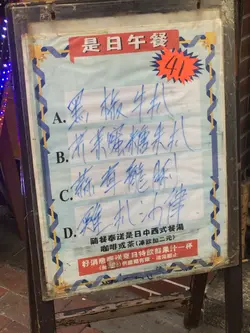 是日午餐
41
A. 黑椒牛扒
B. 芥末蜜糖朱扒
C. 蒜茸雞
D. 雜扒
隨餐奉送是日中西式餐湯
咖啡或茶(凍飲加二元)